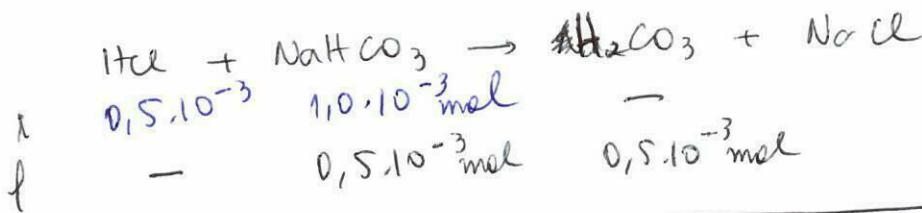 HCl + NaHCO₃ → H₂CO₃ + NaCl
i 0,5.10⁻³ 1,0.10⁻³mol —
f — 0,5.10⁻³mol 0,5.10⁻³mol